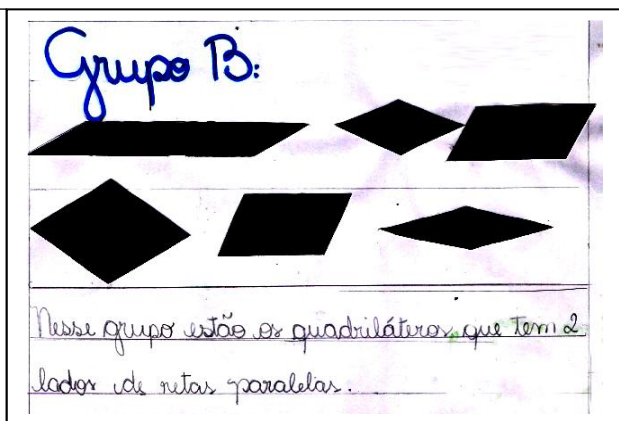 Grupo B:
Nesse grupo estão os quadriláteros que tem 2
lados de retas paralelas.